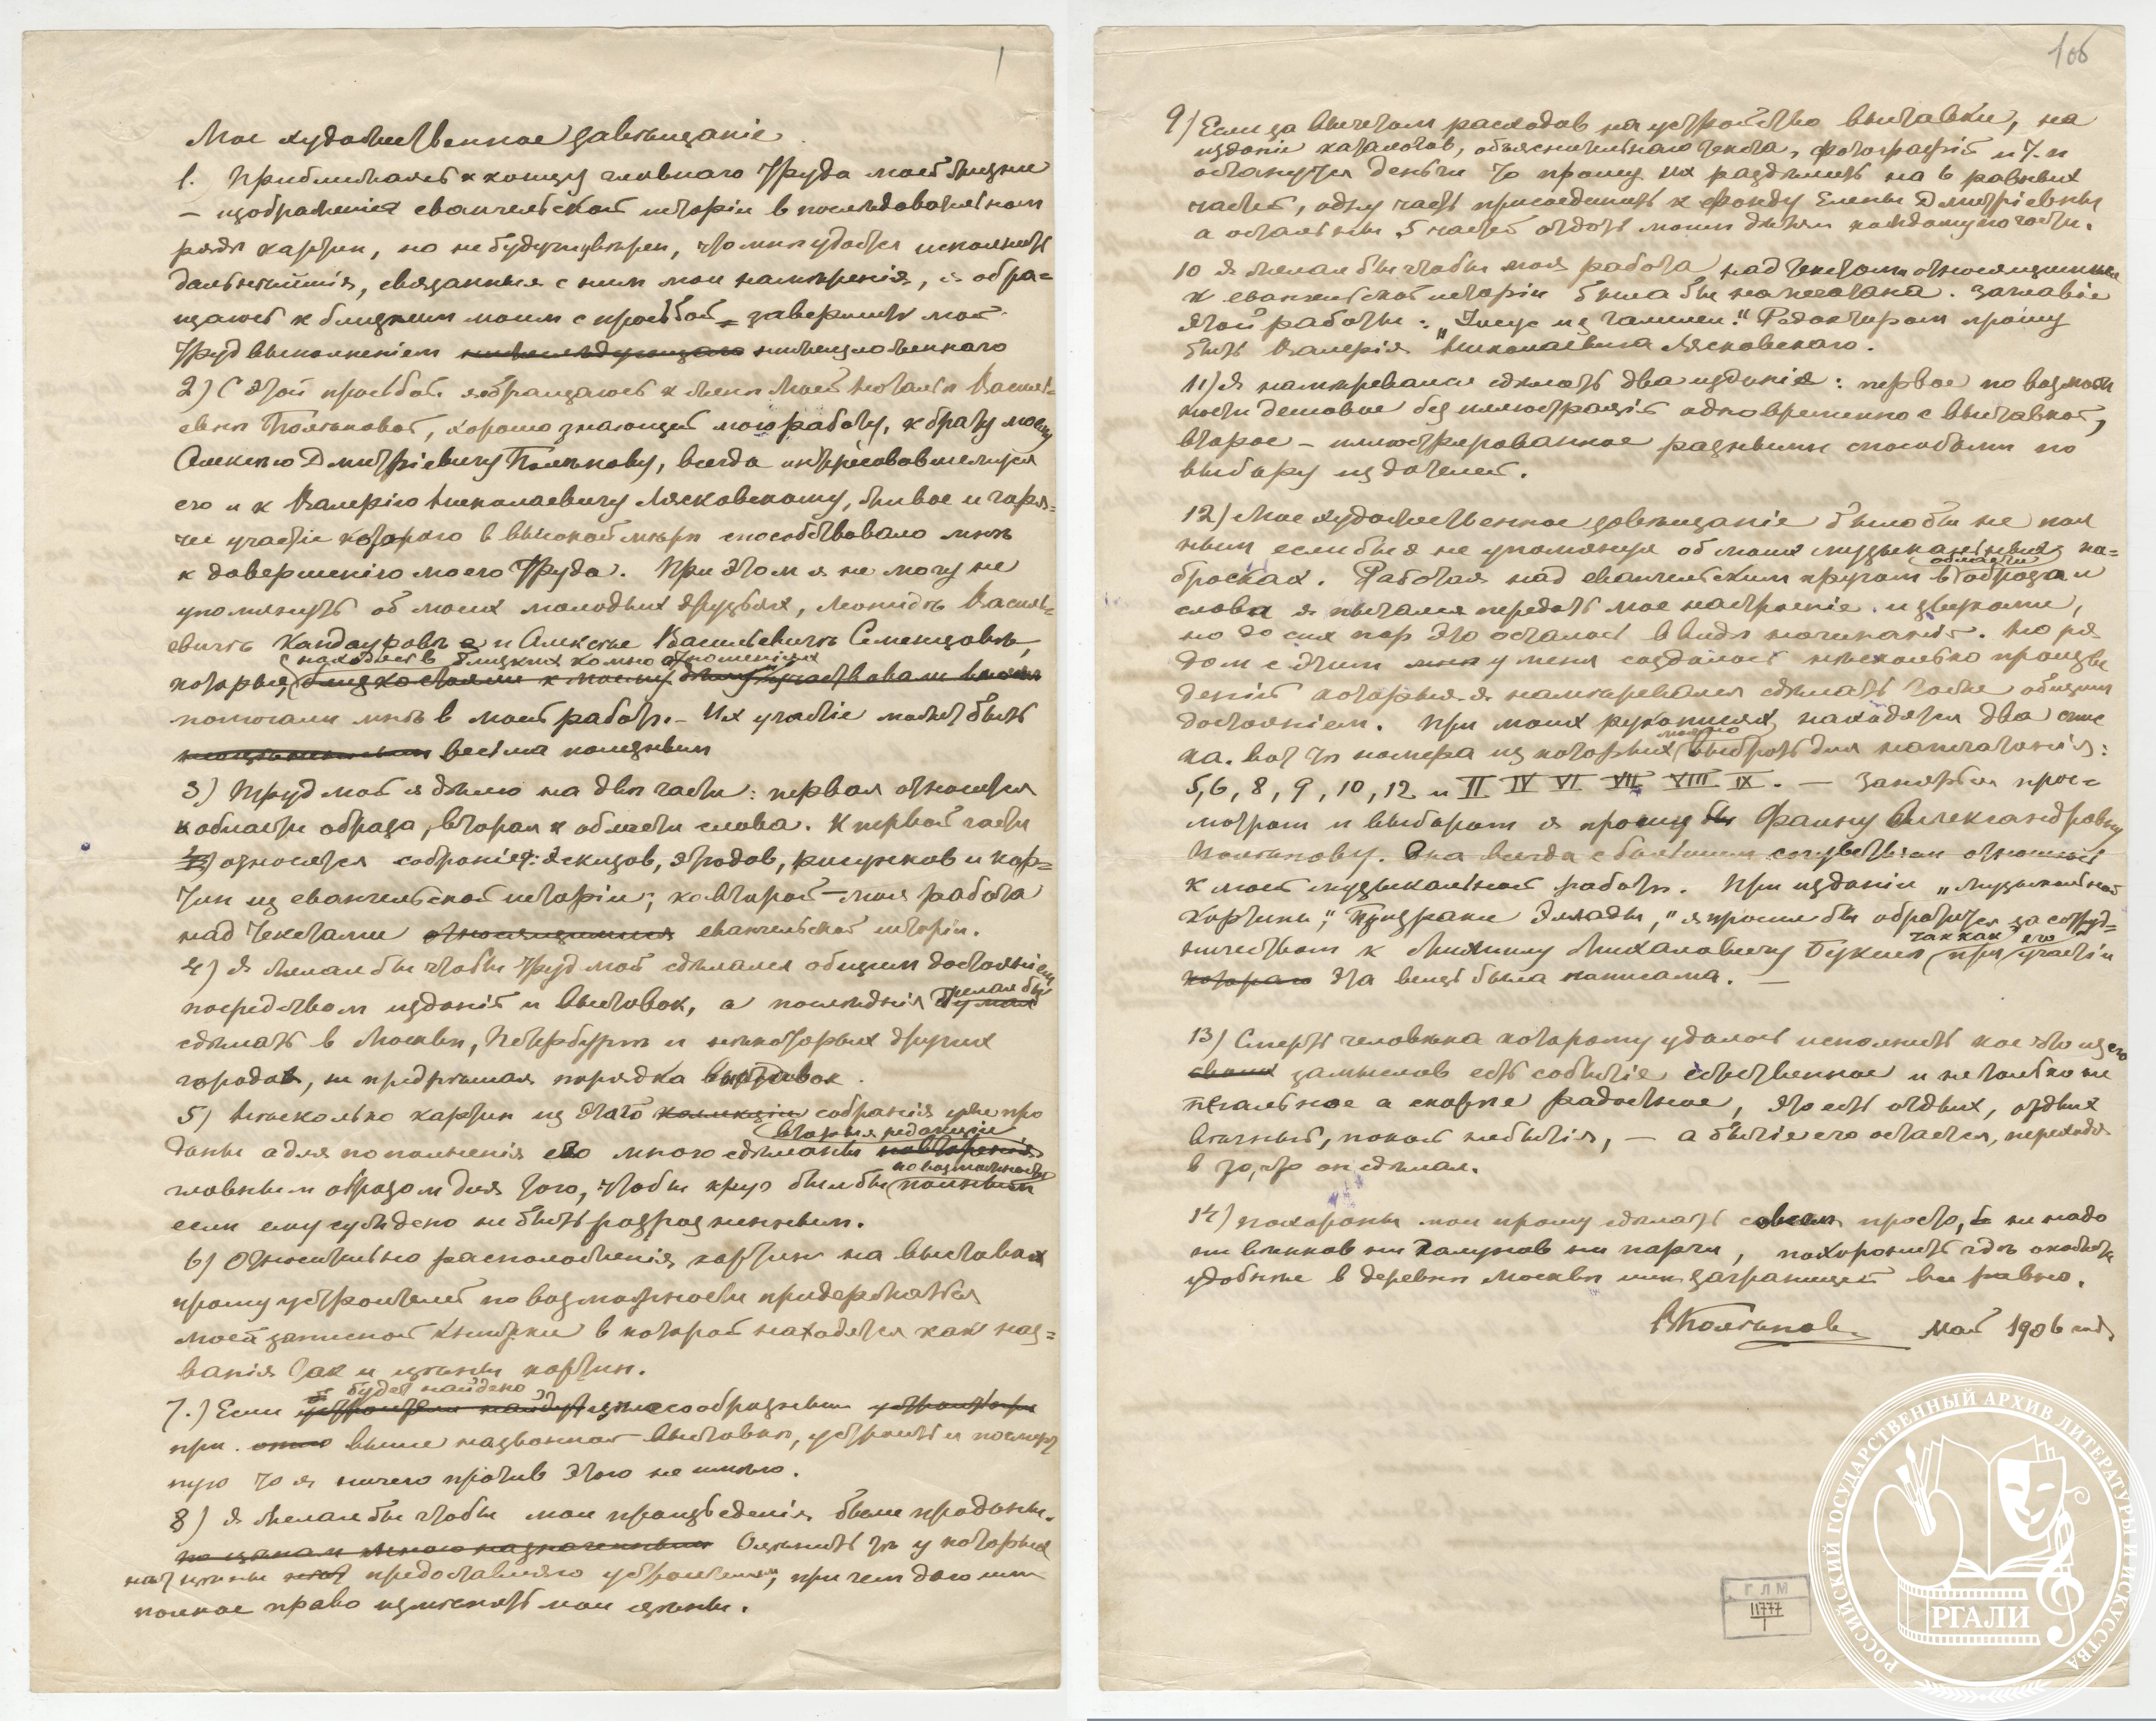 1
Мое художественное завѣщаніе
1. Приближаясь к концу главнаго труда моей жизни
— изображенія евангельской исторіи в последовательном
рядѣ картин, но не будучи увѣрен, что мнѣ удастся исполнить
дальнѣйшія, связанныя с ним мои намѣренія, я обра=
щаюсь к близким моим с просьбой завершить мой
труд выполненіем нижеизложеннаго
2) С этой просьбой я обращаюсь к женѣ моей Натальѣ Василь=
евнѣ Полѣновой, хорошо знающей мою работу, к брату моему
Алексѣю Дмитріевичу Полѣнову, всегда интересовавшемуся
ею и к Валерію Николаевичу Лясковскому, живое и горя=
чее участіе котораго в высокой мѣрѣ способствовало мнѣ
к довершенію моего труда. При этом я не могу не
упомянуть об моих молодых друзьях, Леонидѣ Василь=
евичѣ Кандауровѣ и Алексѣе Васильевичѣ Семенцовѣ,
находясь в близких ко мнѣ отношеніях
которые,
помогали мнѣ в моей работѣ. — Их участіе может быть
весьма полезным
3) Труд мой я дѣлю на двѣ части: первая относится
к области образа, вторая к области слова. К первой части
относятся собранія: эскизов, этюдов, рисунков и кар=
тин из евангельской исторіи; ко второй — моя работа
над текстами относящимися евангельской исторіи.
4) Я желал бы чтобы труд мой сдѣлался общим достояніем
посредством изданій и выставок, а послѣднія желал бы думал
сдѣлать в Москвѣ, Петербургѣ и нѣкоторых других
городах, не предрѣшая порядка выставок.
5) Нѣсколько картин из этого коллекціи собранія уже про
даны а для пополненія его мною сдѣланы повторенія
вторыя редакціи
по возможности
главным образом для того, чтобы круг был бы полным
если ему суждено не быть раздрозненным.
6) Относительно расположенія картин на выставках
прошу устроителей по возможности придержаться
моей записной книжки в которой находятся как наз=
ванія так и цѣны картин.
будет найдено
7.) Если устроители найдут цѣлесообразным
при выше названной выставкѣ, устроить и посмерт
ную то я ничего против этого не имѣю.
8) Я желал бы чтобы мои произведенія были проданы.
по цѣнам мною назначенным Оцѣнить тѣ у которых
нѣт цѣны предоставляю устроителям, при чем даю им
полное право измѣнять мои цѣны.
1об
9) Если за вычетом расходов на устройство выставки, на
изданіе каталогов, объяснительнаго текста, фотографій и т. п
останутся деньги то прошу их раздѣлить на 6 равных
частей, одну часть присоединить к фонду Елены Дмитріевны
а остальныя 5 частей отдать моим дѣтям каждому по части.
10 Я желал бы чтобы моя работа над текстами относящимися
к евангельской исторіи была бы напечатана. Заглавіе
этой работы: „Іисус из Галилеи." Редактором прошу
быть Валерія Николаевича Лясковскаго.
11) Я намѣревался сдѣлать два изданія: первое по возмож
ности дешовое без иллюстрацій одновременно с выставкой,
второе — иллюстрированное разными способами по
выбору издателей.
12) Мое художественное завѣщаніе было бы не пол
ным если бы я не упомянул об моих музыкальных на=
области
бросках. Работая над евангельским кругом в образа и
слова я пытался передать мое настроеніе и звуками,
но до сих пор это осталось в видѣ начинаній. Но ря
дом с этим у меня создалось нѣсколько произве
деній которыя я намѣревался сдѣлать тоже общим
достояніем. При моих рукописях находятся два спис
можно
ка. вот тѣ номера из которых выбрать для напечатанія:
5, 6, 8, 9, 10, 12 и II IV VI VII VIII IX. — Заняться прос=
мотром и выбором я прошу Фаину Александровну
Полѣнову. Она всегда с большим сочувствіем относилась
к моей музыкальной работѣ. При изданіи „музыкальной
картины," „Призраки Эллады," я просил бы обратится за сотруд=
ничеством к Михаилу Михаловичу Букша так как при его участіи
котораго эта вещь была написана. —
13) Смерть человѣка которому удалось исполнить кое что из его
своих замыслов есть событіе естественное и не только не
печальное а скорѣе радостное, это есть отдых, отдых
вѣчный, покой небытія, — а бытіе его остается, переходя
в то, что он сдѣлал.
14) Похороны мои прошу сдѣлать совсем просто, не надо
ни вѣнков ни галунов ни парчи, похоронить гдѣ окажется
удобнѣе в деревнѣ Москвѣ или заграницей все равно.
ВПолѣнов. Май 1906 года
ГЛМ
11777
1
РОССИЙСКИЙ ГОСУДАРСТВЕННЫЙ АРХИВ ЛИТЕРАТУРЫ И ИСКУССТВА
РГАЛИ